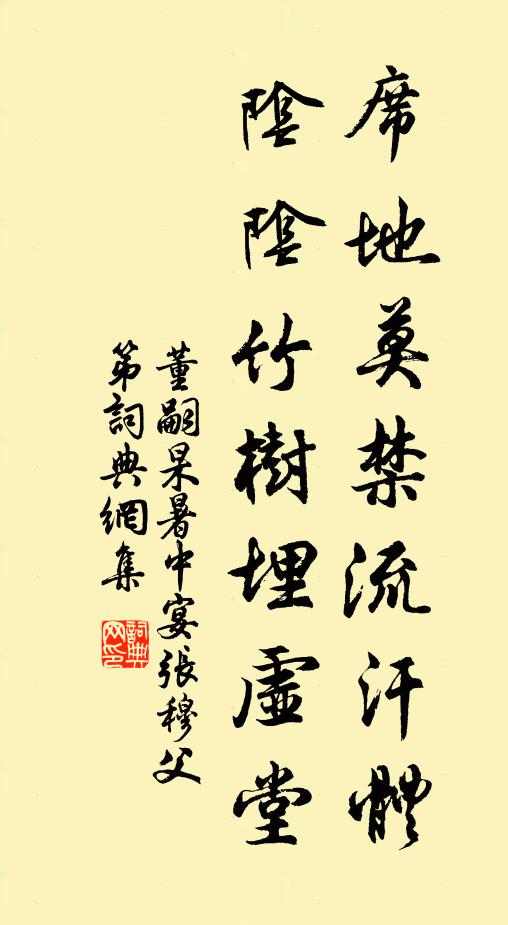 席地莫禁流汗體
陰陰竹樹埋虛堂
董嗣杲暑中宴張穆父
第詞典網集
詞典網印